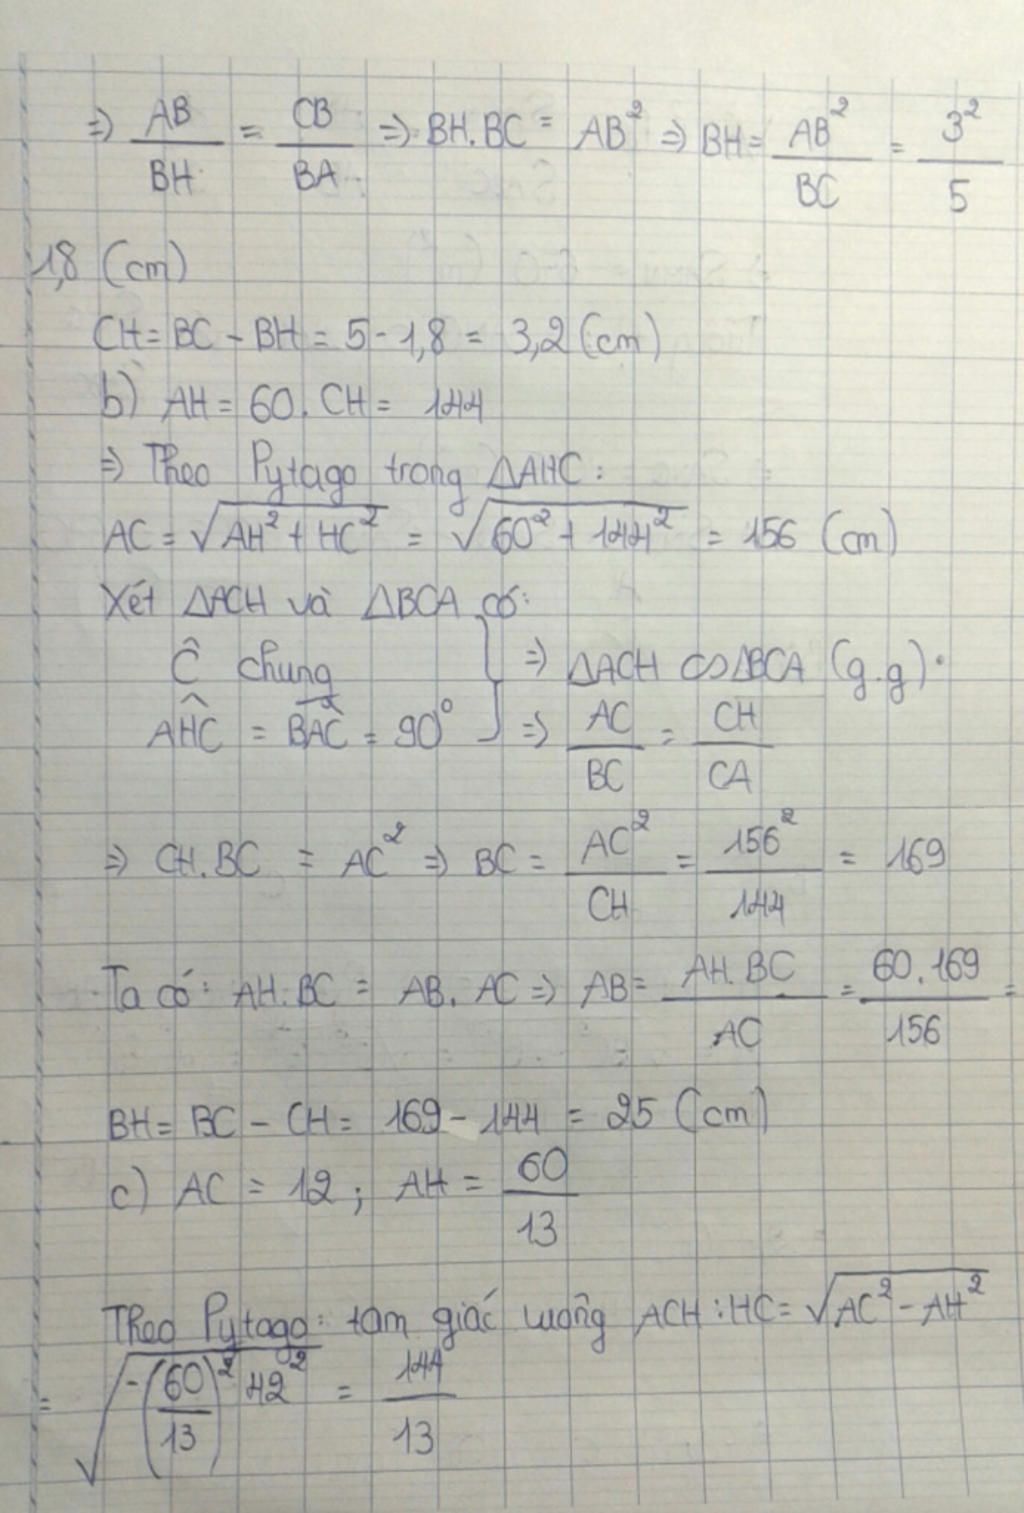 ⇒ AB/BH = CB/BA ⇒ BH.BC = AB² ⇒ BH = AB²/BC = 3²/5
1,8 (cm)
CH = BC - BH = 5 - 1,8 = 3,2 (cm)
b) AH = 60. CH = 144
⇒ Theo Pytago trong ΔAHC:
AC = √(AH² + HC²) = √(60² + 144²) = 156 (cm)
Xét ΔACH và ΔBCA có:
Ĉ chung } ⇒ ΔACH ∽ ΔBCA (g.g).
AHC = BAC = 90° ⇒ AC/BC = CH/CA
⇒ CH.BC = AC² ⇒ BC = AC²/CH = 156²/144 = 169
Ta có: AH.BC = AB.AC ⇒ AB = AH.BC/AC = 60.169/156 =
BH = BC - CH = 169 - 144 = 25 (cm)
c) AC = 12; AH = 60/13
Theo Pytago: tam giác ACH: HC = √(AC² - AH²)
= √(-(60/13)² +12²) = 144/13